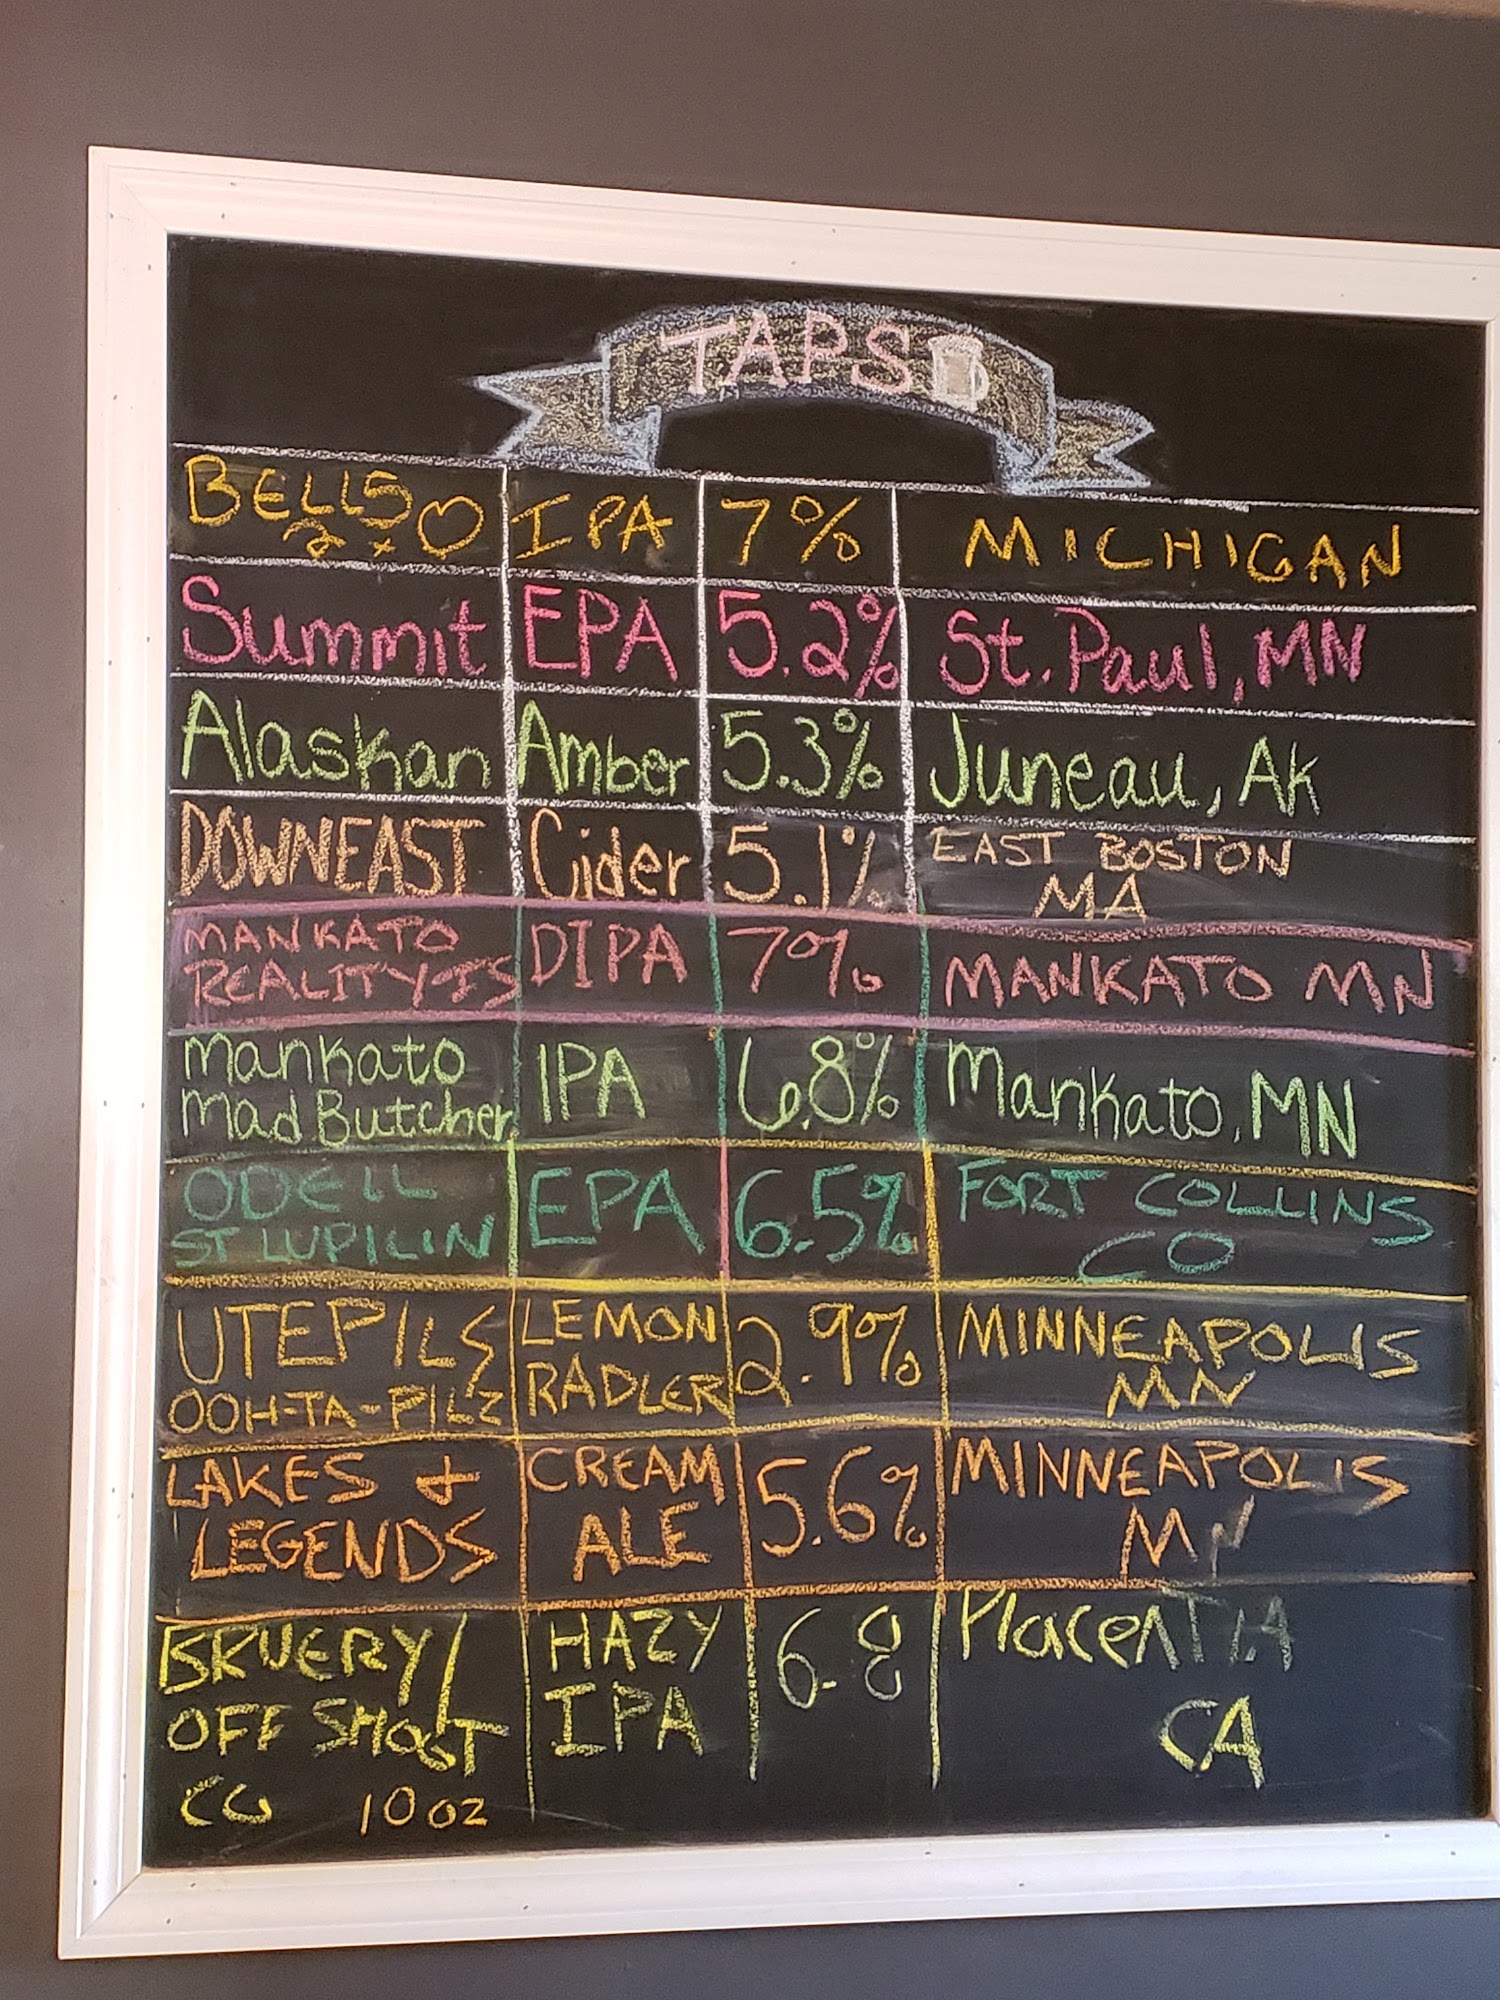 TAPS
BELLS IPA 7% MICHIGAN
2x♡
Summit EPA 5.2% St. Paul, MN
Alaskan Amber 5.3% Juneau, AK
DOWNEAST Cider 5.1% EAST BOSTON
MA
MANKATO DIPA 7% MANKATO MN
REALITY IS
Mankato IPA 6.8% Mankato, MN
Mad Butcher
ODELL EPA 6.5% FORT COLLINS
ST LUPILIN CO
UTEPILS LEMON 2.9% MINNEAPOLIS
OOH-TA-PILZ RADLER MN
LAKES & CREAM 5.6% MINNEAPOLIS
LEGENDS ALE MN
BRUERY/ HAZY 6.8 PlacenTIA
OFF SHOOT IPA CA
CG 10oz